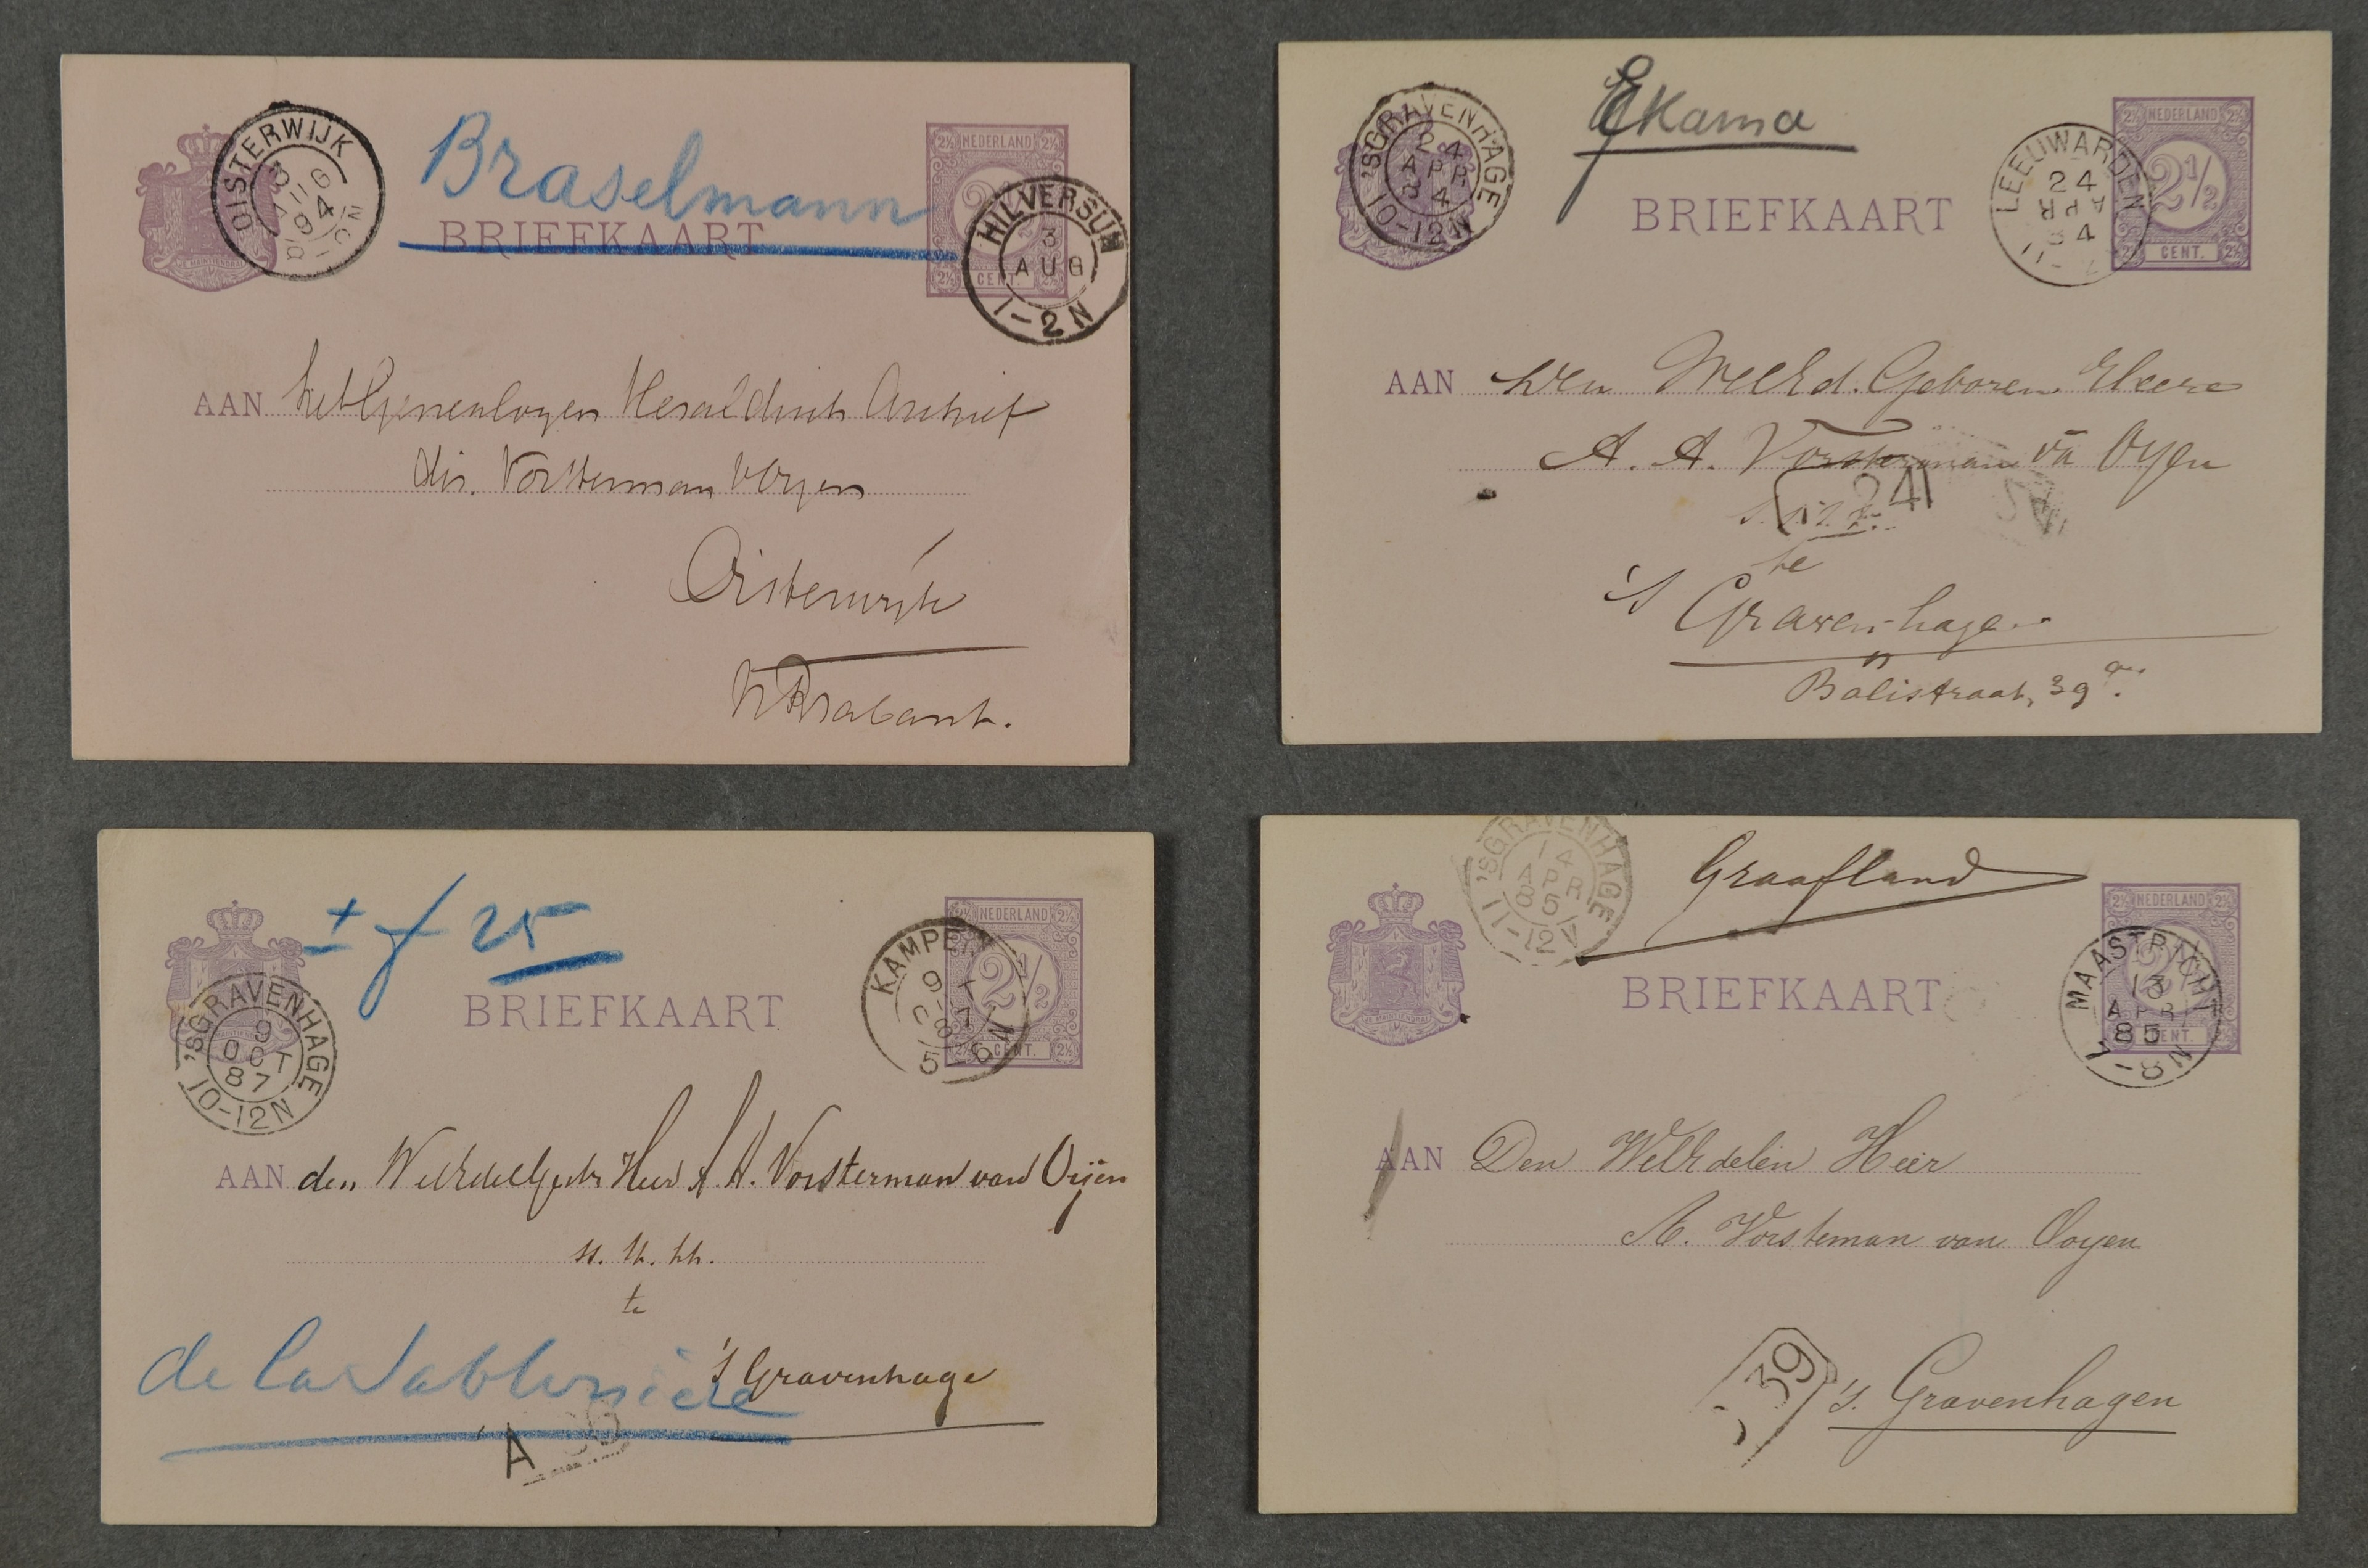 OISTERWIJK
3 AUG
94
Braselmann
BRIEFKAART
2½ NEDERLAND 2½
CENT.
HILVERSUM
3
AUG
1-2N
AAN het Genealogen Heraldisch Archief
dir. Vorsterman v Oijen
Oisterwijk
N Brabant.
'SGRAVENHAGE
24
APR
84
10-12N
Ekama
BRIEFKAART
LEEUWARDEN
24
APR
84
2½ NEDERLAND 2½
2½
2½ CENT. 2½
AAN den WelEd. Geboren Heere
A. A. Vorsterman vn Oyen
241
te
's Gravenhage
Balistraat, 39a.
± f 25
BRIEFKAART
'SGRAVENHAGE
9
OCT
87
10-12N
KAMPEN
9
OCT
87
5-6N
2½ NEDERLAND 2½
2½
2½ CENT. 2½
AAN den WelEdelGebr Heer A. A. Vorsterman van Oijen
te
's Gravenhage
de la Sablonière
A
'SGRAVENHAGE
14
APR
85
11-12V
Graafland
BRIEFKAART
2½ NEDERLAND 2½
CENT. 2½
MAASTRICHT
13
APR
85
7-8N
AAN Den WelEdelen Heer
A. Vorsteman van Ooyen
39
's. Gravenhagen